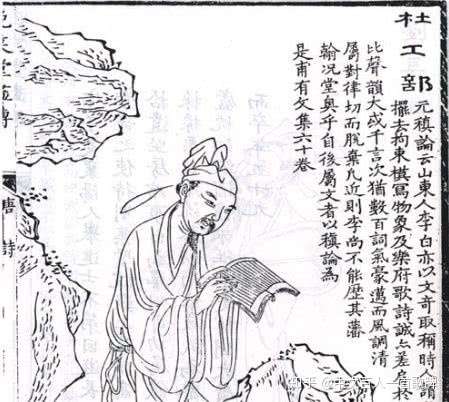 杜工部
元稹論云山東人李白亦以文奇取稱時人謂
擺去拘束模寫物象及樂府歌詩誠亦差肩於
比聲韻大或千言次猶數百詞氣豪邁而風調清
屬對律切而脫棄凡近則李尚不能歷其藩
翰况堂奧乎自後屬文者以稹論為
是甫有文集六十卷
笑堂畫傳
唐詩
知乎